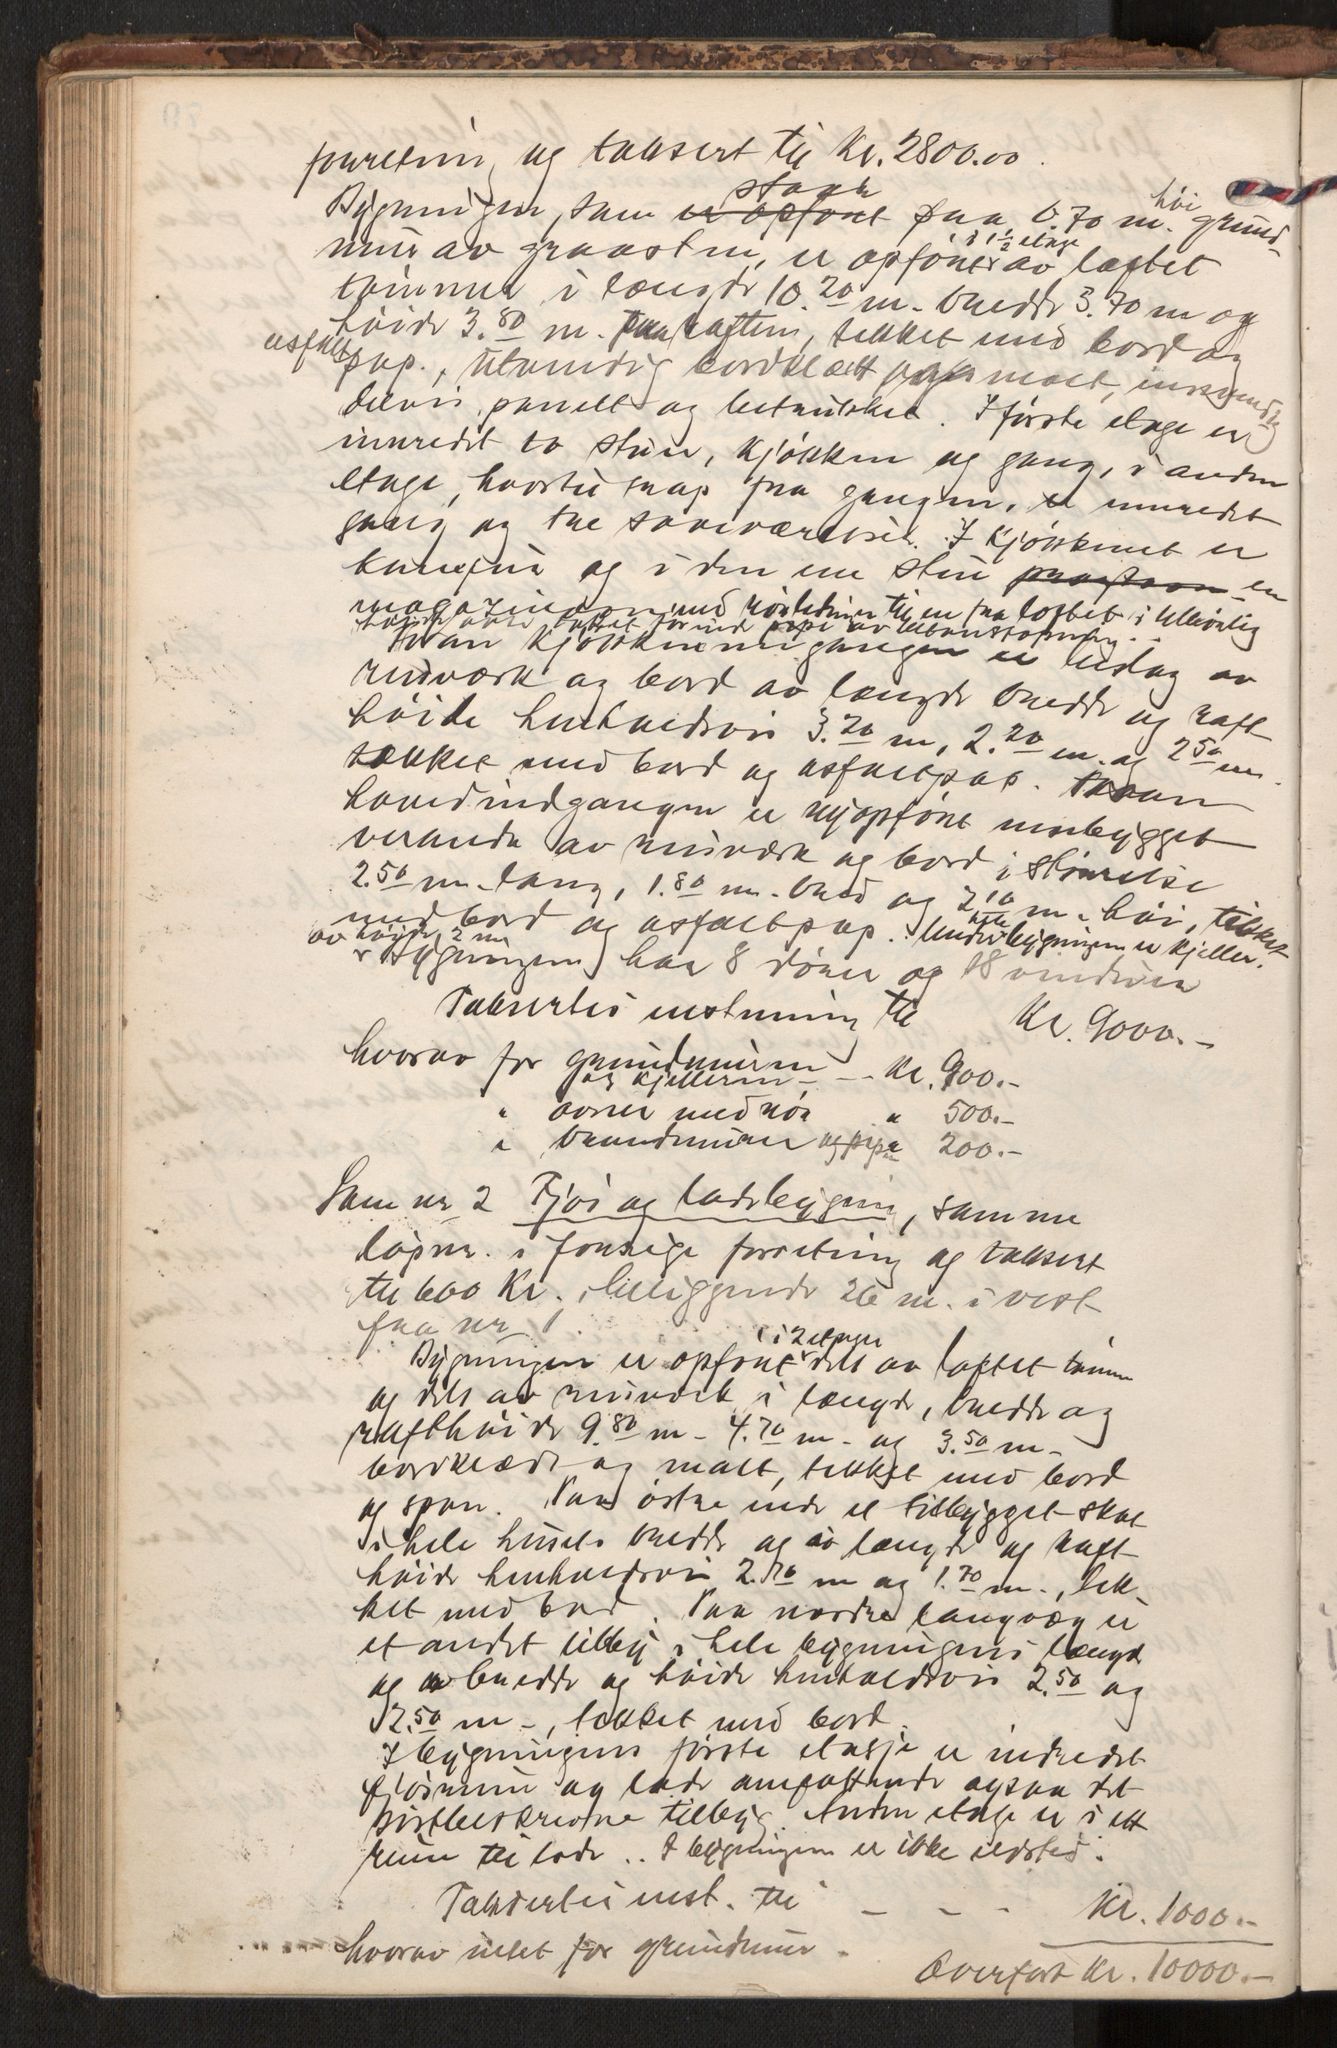 forretning og taksert til Kr. 2800.00.
Bygningen, som er opført staar paa 0.70 m. høi grund-
mur av graasten, er opført i 1 1/2 etage av laftet
tømmer i længde 10.20 m. bredde 3.70 m og
høide 3.80 m. paa raften, tekket med bord og
asfaltpap., utvendig bordklædt og malt, indvendig
delvis panelt og betrukket. I første etage er
innredet to stuer, kjøkken og gang, i anden
etage, hvortil trap fra gangen, er innredet
gang og tre soveværelser. I kjøkkenet er
komfur og i den ene stue en
magazinovn med rørledning til en fra loftet i tilbørlig
høide over taket førende pipe av
Foran kjøkkeninngangen er bislag av
reisværk og bord av længde bredde og raft-
høide henholdsvis 3.20 m, 2.20 m. og 2.50 m.
tækket med bord og asfaltpap. Foran
hovedindgangen er nyopført innebygget
veranda av reisværk og bord i størrelse
2.50 m. lang, 1.80 m. bred og 2.10 m. høi, tekket
med bord og asfaltpap. Under hele bygningen er kjeller
av høide 2 m
Bygningen har 8 dører og 18 vinduer
Taksertes i nstning til Kr. 9000.-
hvorav for grundmuren
og kjelleren - - Kr. 900.-
" ovner med rør " 500.-
" brandmurer og pipe 200.-
Som nr 2 Fjøs og ladebygning, samme
løpnr. i forrige forretning og taksert
til 600 Kr., beliggende 26 m. i vest
fra nr 1.
Bygningen er opført i 2 etager dels av laftet tømmer
og dels av reisverk i længde, bredde og
rafthøide 9.80 m - 4.70 m - og 3.50 m -
bordklædt og malt, tekket med bord
og spon. Paa østre ende er tilbygget skot
i hele husets bredde og av længde og raft-
høide henholdsvis 2.70 m og 1.70 m., tek-
ket med bord. Paa nordre langvæg er
et andet tilbyg i hele bygningens længde
og av bredde og høide henholdsvis 2.50 og
2.50 m -, tekket med bord.
I bygningens første etasje er indredet
fjøsrum og lade omfattende ogsaa det
sistbeskrevne tilbyg. Anden etage er i ett
rum til lade. I bygningen er ikke ildsted.
Taksertes inst. til - - - Kr. 1000.-
hvorav intet for grundmur.
Overført Kr. 10000.-